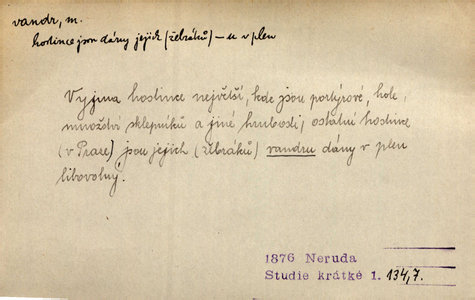 vandr, m.
hostince jsou dány jejich (žebráků) – u v plen
Vyjma hostince největší, kde jsou portýrové, hole,
množství sklepníků a jiné hrubosti, ostatní hostince
(v Praze) jsou jejich (žebráků) vandru dány v plen
libovolný.
1876 Neruda
Studie krátké 1. 134,7.